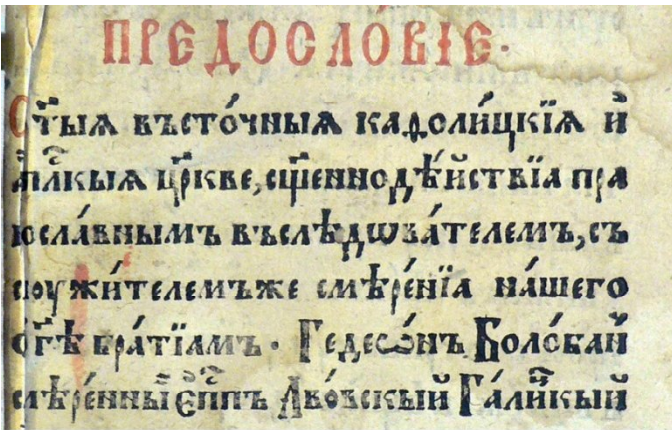 ПРЕДОСЛО́ВІЕ.
Ст҃ыѧ въсто́чныѧ каѳоли́цкїѧ и҆
а҆пⷭ҇лкыѧ цр҃кве, сщ҃еннодѣ́йствїа пра
вослáвнымъ въслѣдѡвáтелемъ, съ
слꙋжи́телемъже смѣре́нїа нáшего
ѻ҆ г҃ѣ брáтїамъ. Гедеѡ́нъ Болобáй
смѣре́нныⷤ Є҆пⷭ҇пъ Лво́вскый Гáлиⷱ҇кый